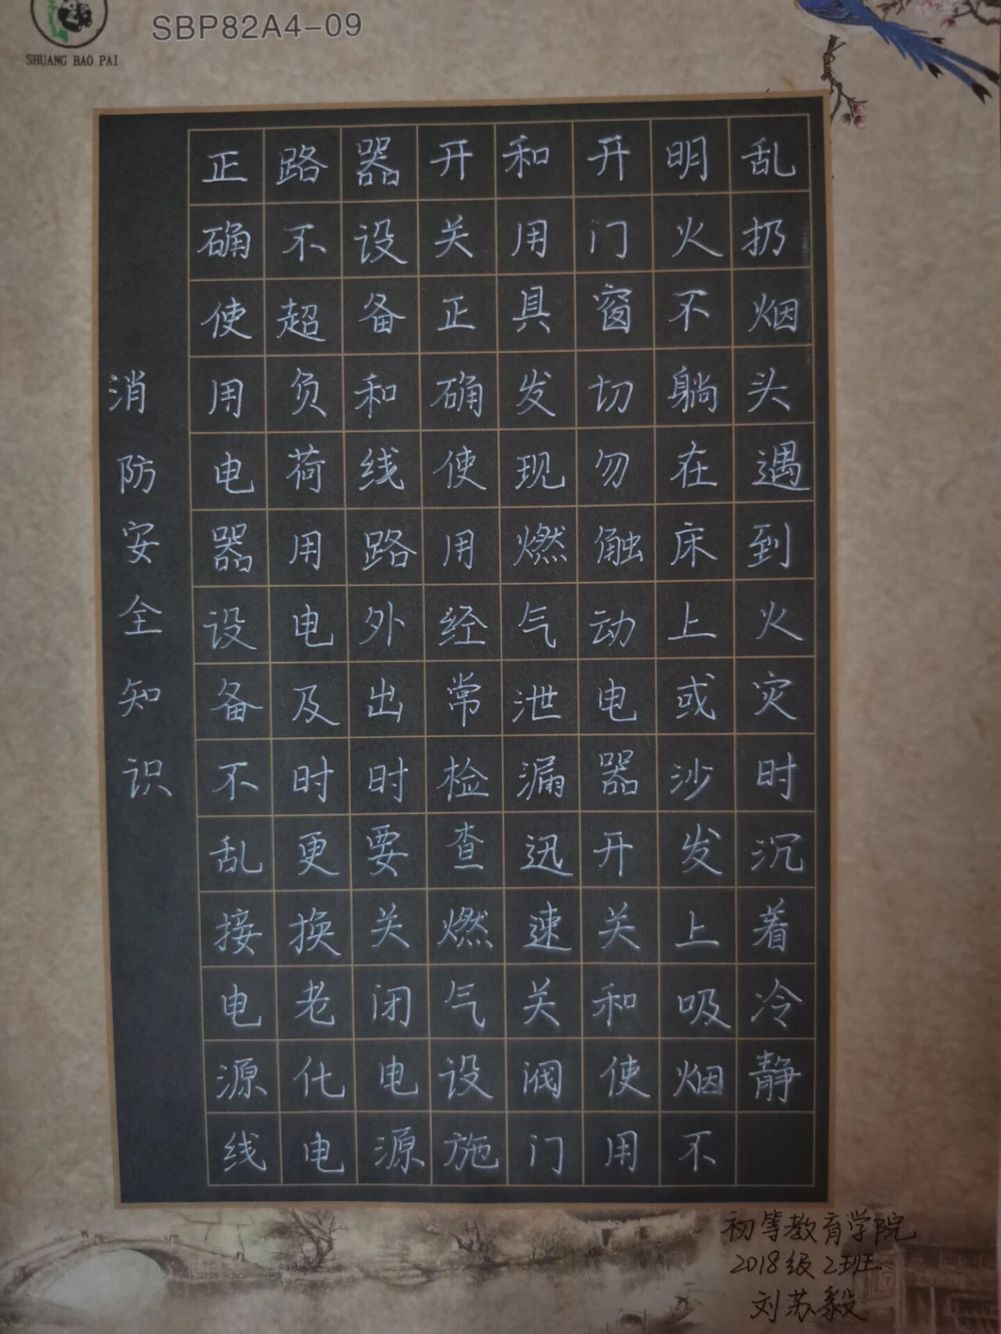 SBP82A4-09
SHUANG BAO PAI
消防安全知识
正确使用电器设备不乱接电源线
路不超负荷用电及时更换老化电
器设备和线路外出时要关闭电源
开关正确使用经常检查燃气设施
和用具发现燃气泄漏迅速关阀门
开门窗切勿触动电器开关和使用
明火不躺在床上或沙发上吸烟不
乱扔烟头遇到火灾时沉着冷静
初等教育学院
2018级2班
刘苏毅